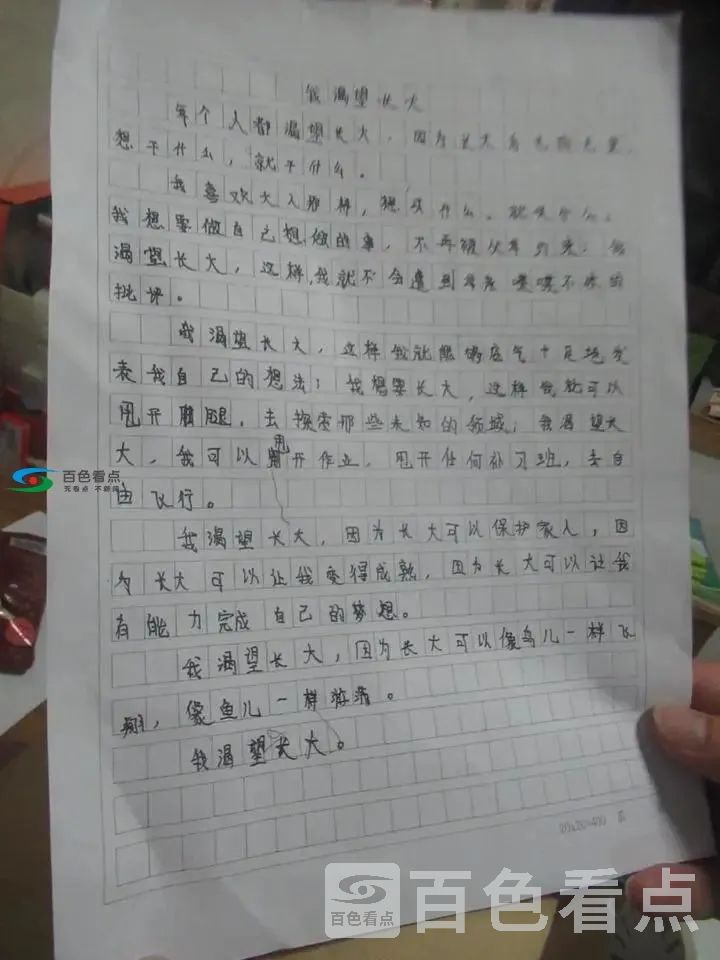 我渴望长大
每个人都渴望长大，因为长大
想干什么，就干什么。
我喜欢大人那样，想吃什么，就吃什么；
我想要做自己想做的事，不再被父母约束；我
渴望长大，这样，我就不会遭到 喋喋不休的
批评。
我渴望长大，这样我就能够底气十足地发
表我自己的想法；我想要长大，这样我就可以
甩开 腿，去探索那些未知的领域；我渴望长
大，我可以甩开作业，甩开任何补习班，去自
由飞行。
我渴望长大，因为长大可以保护家人，因
为长大可以让我变得成熟，因为长大可以让我
有能力完成自己的梦想。
我渴望长大，因为长大可以像鸟儿一样飞
翔，像鱼儿一样游
我渴望长大。
20x20=400
百色看点
无看点 不新闻
百色看点
百色看点